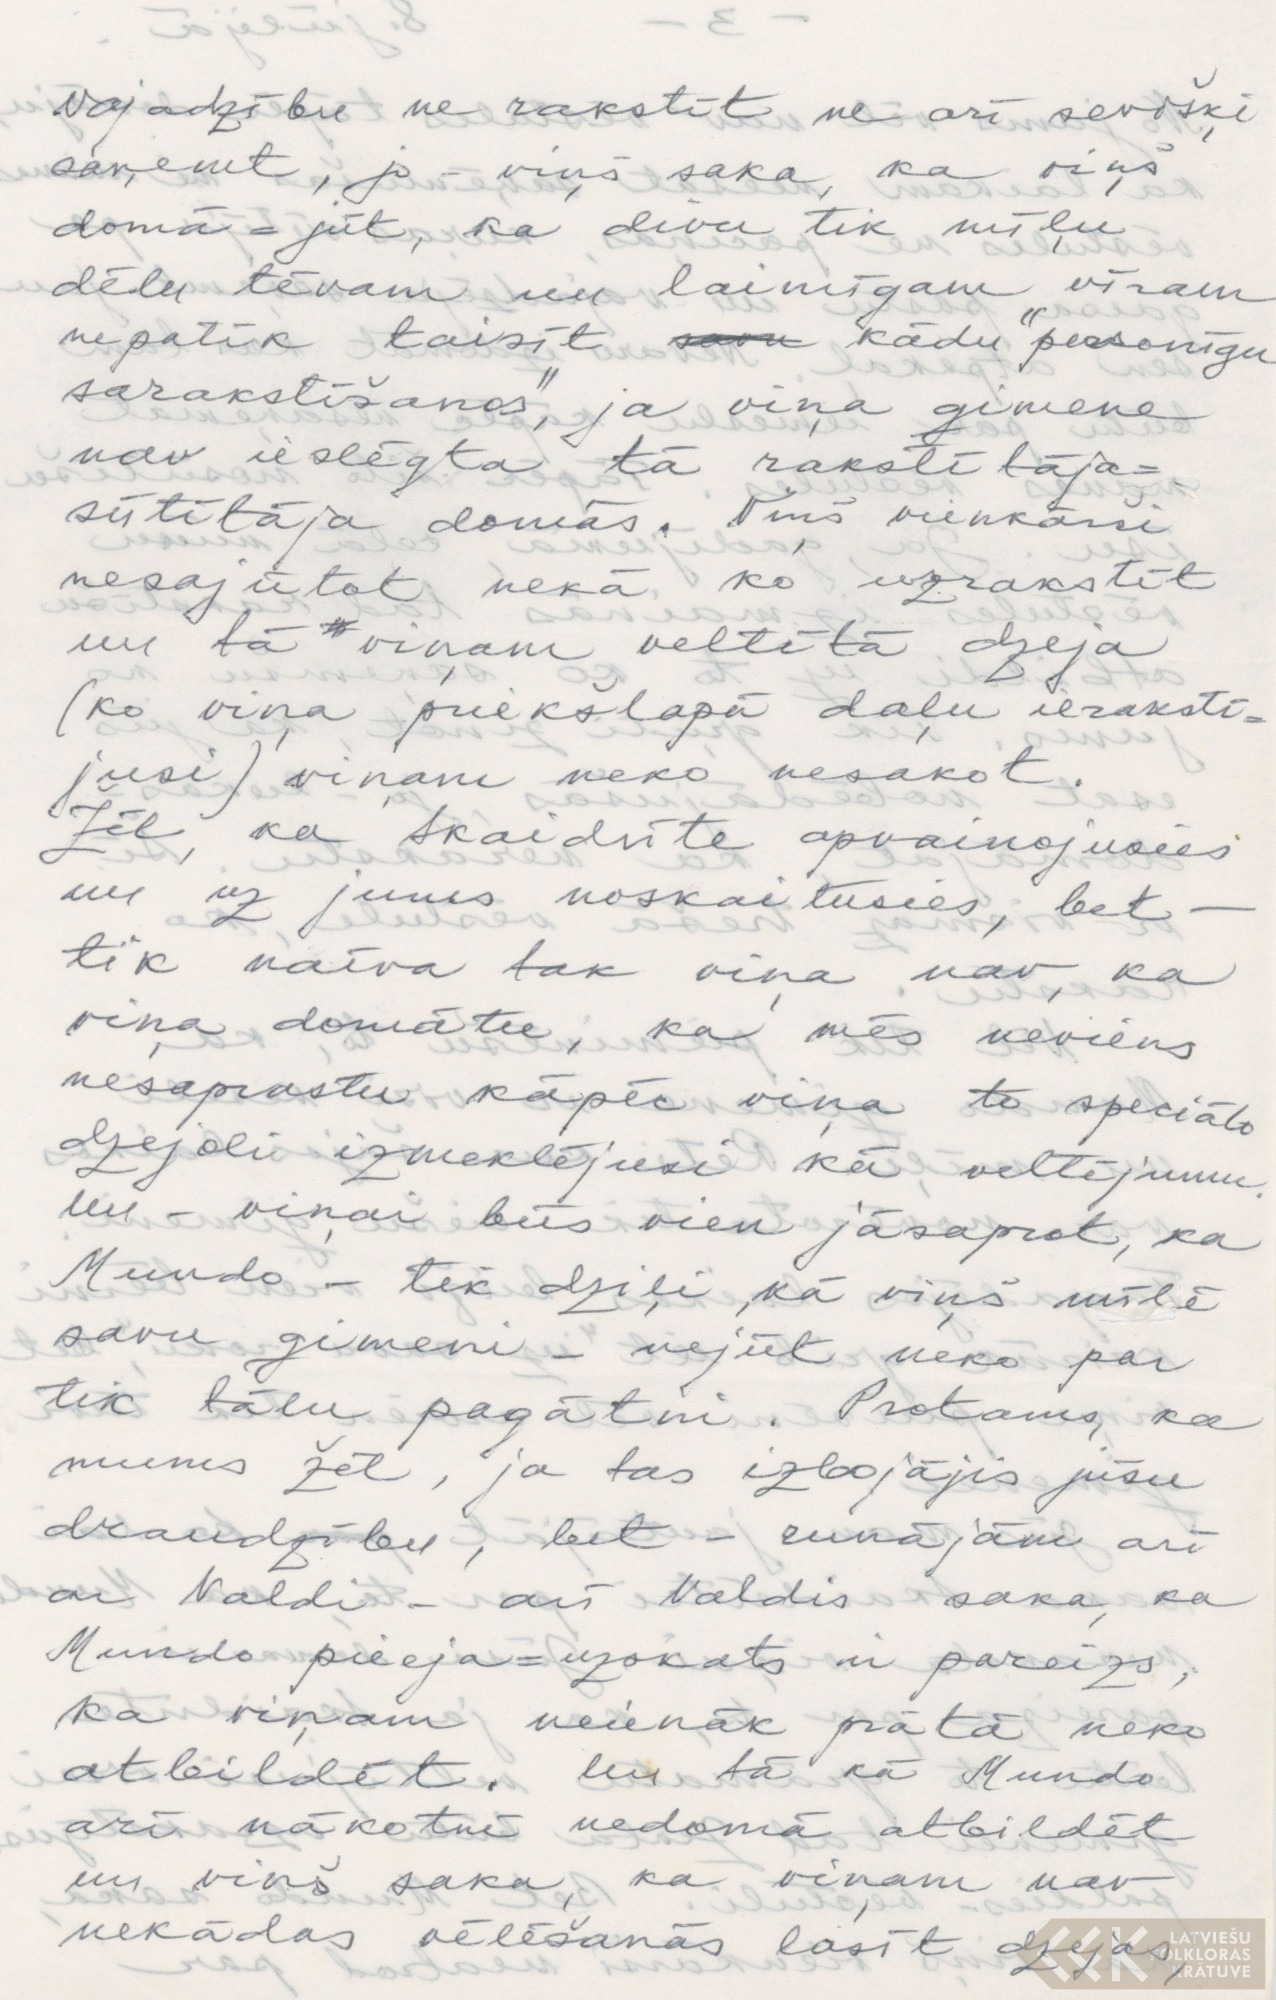 Vajadzību ne rakstīt ne arī sevišķi
saņemt, jo – viņš saka, ka viņš
domā = jūt, ka divu tik mīļu
dēlu tēvam un laimīgam vīram
nepatīk taisīt savu kādu "personīgu
sarakstīšanos", ja viņa gimene
nav ieslēgta tā rakstītāja=
sūtītāja domās. Viņš vienkārši
nesajūtot nekā ko uzrakstīt
un tā viņam veltītā dzeja
(ko viņa priekšlapā daļu ierakstī=
jusi) viņam neko nesakot.
Žēl, ka Skaidrīte apvainojusies
un uz jums noskaitusies, bet –
tik naīva tak viņa nav, ka
viņa domātu, ka mēs neviens
nesaprastu kāpēc viņa to speciālo
dzejoli izmeklējusi kā veltējumu.
Un – viņai būs vien jāsaprot, ka
Mundo – tik dziļi, kā viņš mīlē
savu gimeni – nejūt neko par
tik tālu pagātni. Protams, ka
mums žēl, ja tas izbojājis jūsu
draudzību, bet – runājām arī
ar Valdi – arī Valdis saka, ka
Mundo pieeja=uzskats ir pareizs,
ka viņam neienāk prātā neko
atbildēt. Un tā kā Mundo
arī nākotnē nedomā atbildēt
un viņš saka, ka viņam nav
nekādas vēlēšanās lasīt dzejas,
LATVIEŠU
FOLKLORAS
KRĀTUVE